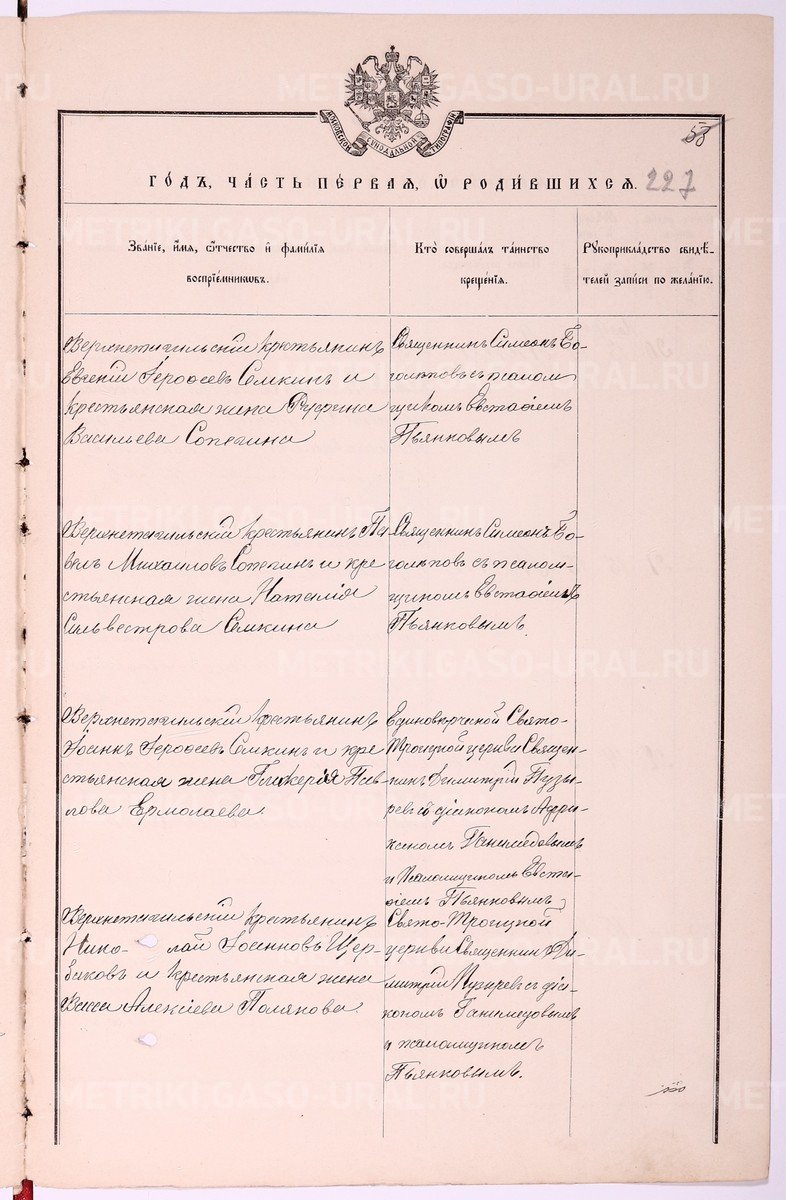 МОСКОВСКОЙ СѴНОДАЛЬНОЙ ТИПОГРАФІИ
58
ГО́ДЪ, ЧА́СТЬ ПЕ́РВАЯ, Ѡ РОДИ́ВШИХСЯ. 227
Зва́ніе, и́мя, ѻ́тчество и҆ фами́лія
воспріе́мниковъ.
Кто̀ соверша́лъ та́инство
креще́нія.
Рꙋкоприкла́дство свидѣ́-
телей за́писи по жела́нію.
Верхнетагильскій крестьянинъ
Евгеній Іерофеевъ Семкинъ и
крестьянская жена Руфина
Васильева Сопегина
Священникъ Симеонъ Бо-
голѣповъ съ псалом
щикомъ Евстафіемъ
Пьянковымъ
Верхнетагильскій крестьянинъ Па
велъ Михаиловъ Сопегинъ и кре
стьянская жена Наталія
Сильвестрова Семкина
Священникъ Симеонъ Бо-
голѣповъ съ псалом-
щикомъ Евстафіемъ
Пьянковымъ.
Верхнетагильскій крестьянинъ
Іоаннъ Іерофеевъ Семкинъ и кре
стьянская жена Гликерія Пав-
лова Ермолаева.
Единовѣрческой Свято-
Троицкой церкви Священ-
никъ Димитрій Пузы-
ревъ съ діакономъ Афри-
каномъ Ганимедовымъ
и Псаломщикомъ Евста-
фіемъ Пьянковымъ
Верхнетагильскій крестьянинъ
Нико- лай Іоанновъ Щер-
баковъ и крестьянская жена
Васса Алексіева Полякова.
Свято-Троицкой
церкви Священникъ Ди-
митрій Пузыревъ съ діа-
кономъ Ганимедовымъ
и псаломщикомъ
Пьянковымъ.
METRIKI.GASO-URAL.RU